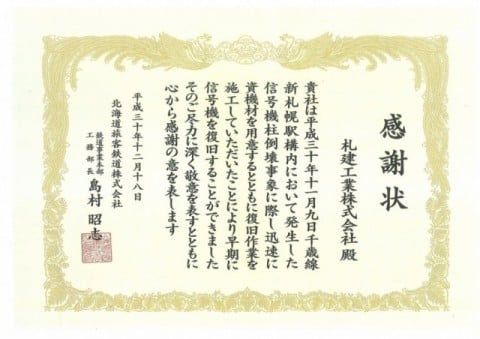 感謝状
札建工業株式会社 殿
貴社は平成三十年十一月九日千歳線
新札幌駅構内において発生した
信号機柱倒壊事象に際し迅速に
資機材を用意するとともに復旧作業を
施工していただいたことにより早期に
信号機を復旧することができました
そのご尽力に深く敬意を表すとともに
心から感謝の意を表します
平成三十年十二月十八日
北海道旅客鉄道株式会社
鉄道事業本部
工務部長 島村 昭志